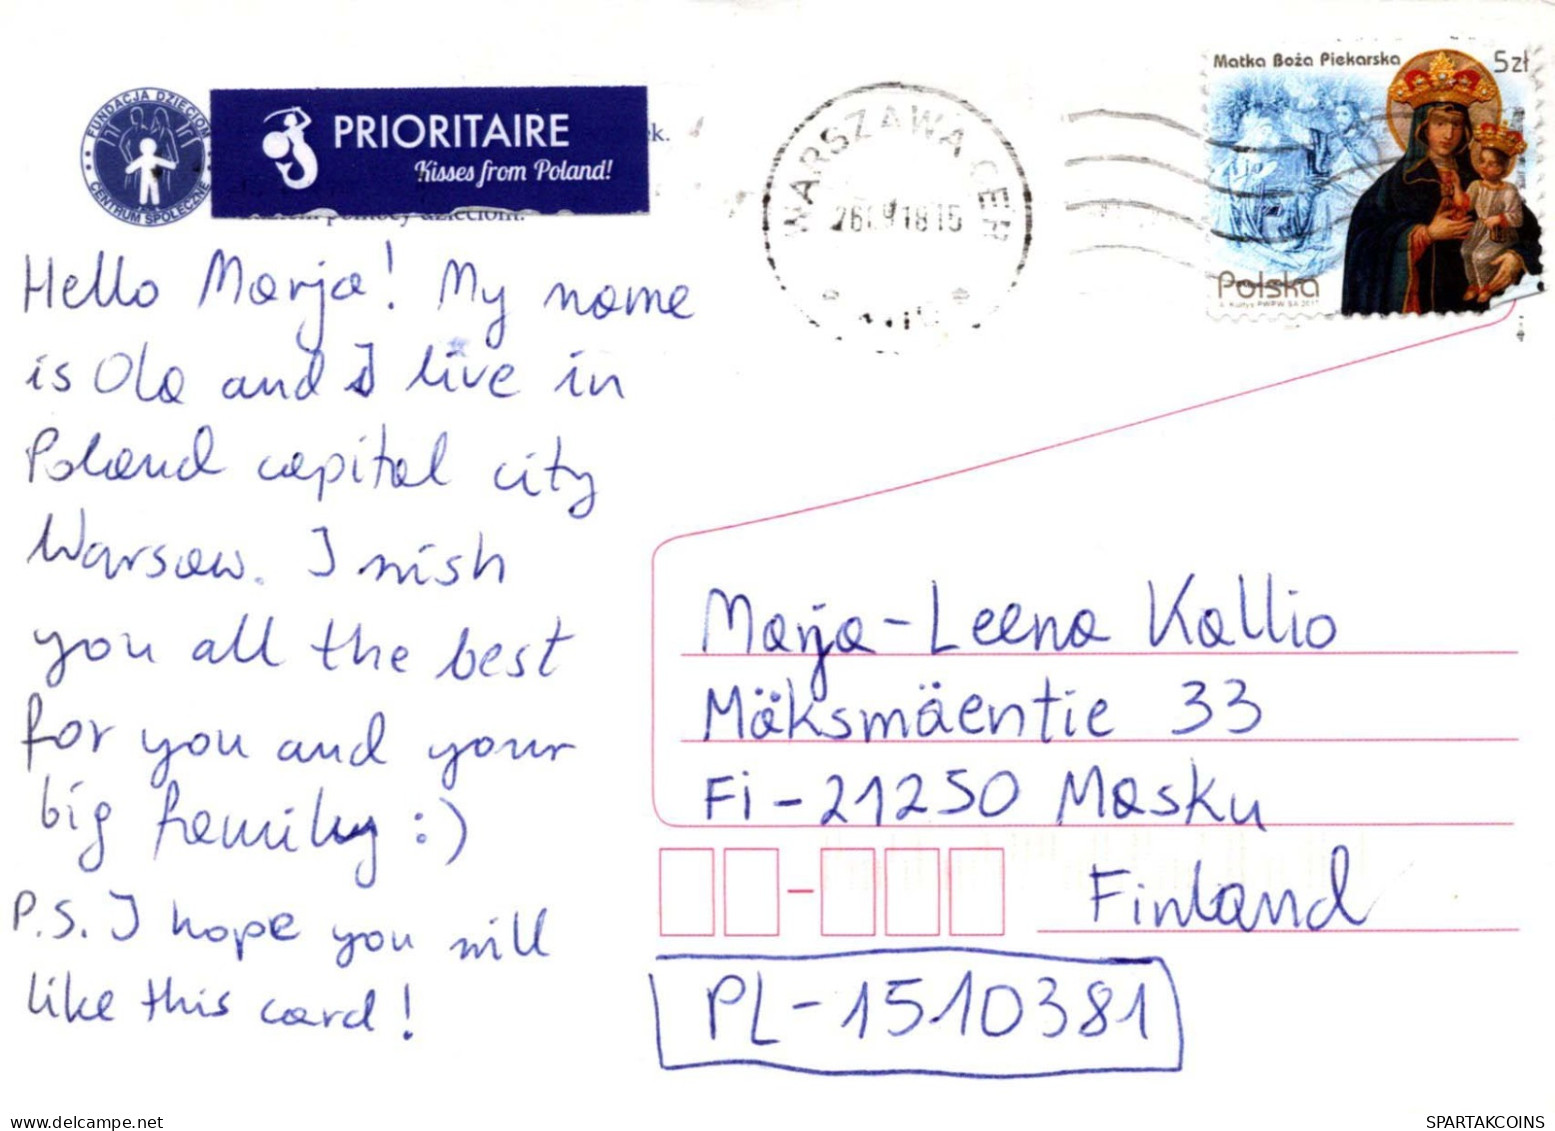 FUNDACJA DZIECIOM
CENTRUM SPOŁECZNE
PRIORITAIRE
Kisses from Poland!
pomocy dzieciom.
WARSZAWA CER
18 15
Matka Boża Piekarska
5 zł
Polska
Hello Marja! My name
is Ola and I live in
Poland capital city
Warsaw. I wish
you all the best
for you and your
big family :)
P.S. I hope you will
like this card!
Marja-Leena Kallio
Mäksmäentie 33
Fi-21250 Masku
Finland
PL-1510381
delcampe.net
SPARTAKCOINS